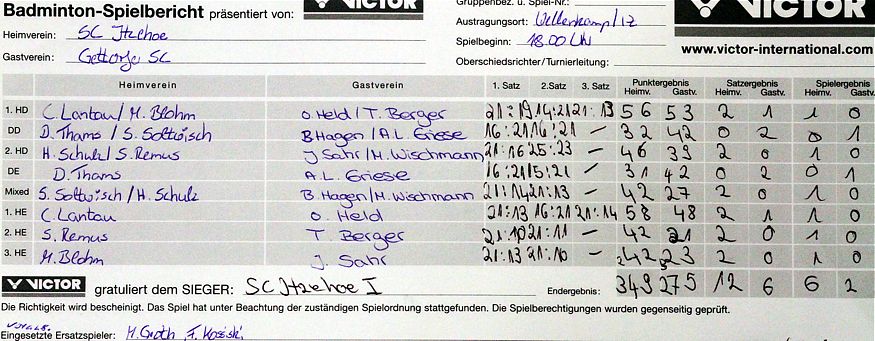 Badminton-Spielbericht präsentiert von: VICTOR
Gruppenbez. u. Spiel-Nr.:
VICTOR
Heimverein: SC Itzehoe
Austragungsort: Wellenkamp/IZ
Gastverein: Gettorfer SC
Spielbeginn: 18.00 Uhr
www.victor-international.com
Oberschiedsrichter/Turnierleitung:
Heimverein Gastverein 1. Satz 2.Satz 3. Satz Punktergebnis Satzergebnis Spielergebnis
Heimv. Gastv. Heimv. Gastv. Heimv. Gastv.
1. HD C. Lantau / M. Blohm O. Held / T. Berger 21:19 14:21 21:13 56 53 2 1 1 0
DD D. Thams / S. Soltwisch B. Hagen / A.L. Griese 16:21 16:21 – 32 42 0 2 0 1
2. HD H. Schulz / S. Remus J. Sahr / M. Wischmann 21:16 25:23 – 46 39 2 0 1 0
DE D. Thams A.L. Griese 16:21 15:21 – 31 42 0 2 0 1
Mixed S. Soltwisch / H. Schulz B. Hagen / M. Wischmann 21:14 21:13 – 42 27 2 0 1 0
1. HE C. Lantau O. Held 21:13 16:21 21:14 58 48 2 1 1 0
2. HE S. Remus T. Berger 21:10 21:11 – 42 21 2 0 1 0
3. HE M. Blohm J. Sahr 21:13 21:10 – 42 23 2 0 1 0
VICTOR gratuliert dem SIEGER: SC Itzehoe I Endergebnis: 349 275 12 6 6 2
Die Richtigkeit wird bescheinigt. Das Spiel hat unter Beachtung der zuständigen Spielordnung stattgefunden. Die Spielberechtigungen wurden gegenseitig geprüft.
Eingesetzte Ersatzspieler: M. Groth F.